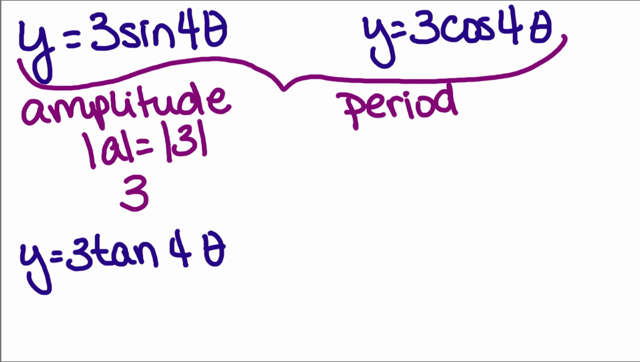 y=3sin4θ y=3cos4θ
amplitude period
|a|=|3|
3
y=3tan 4θ